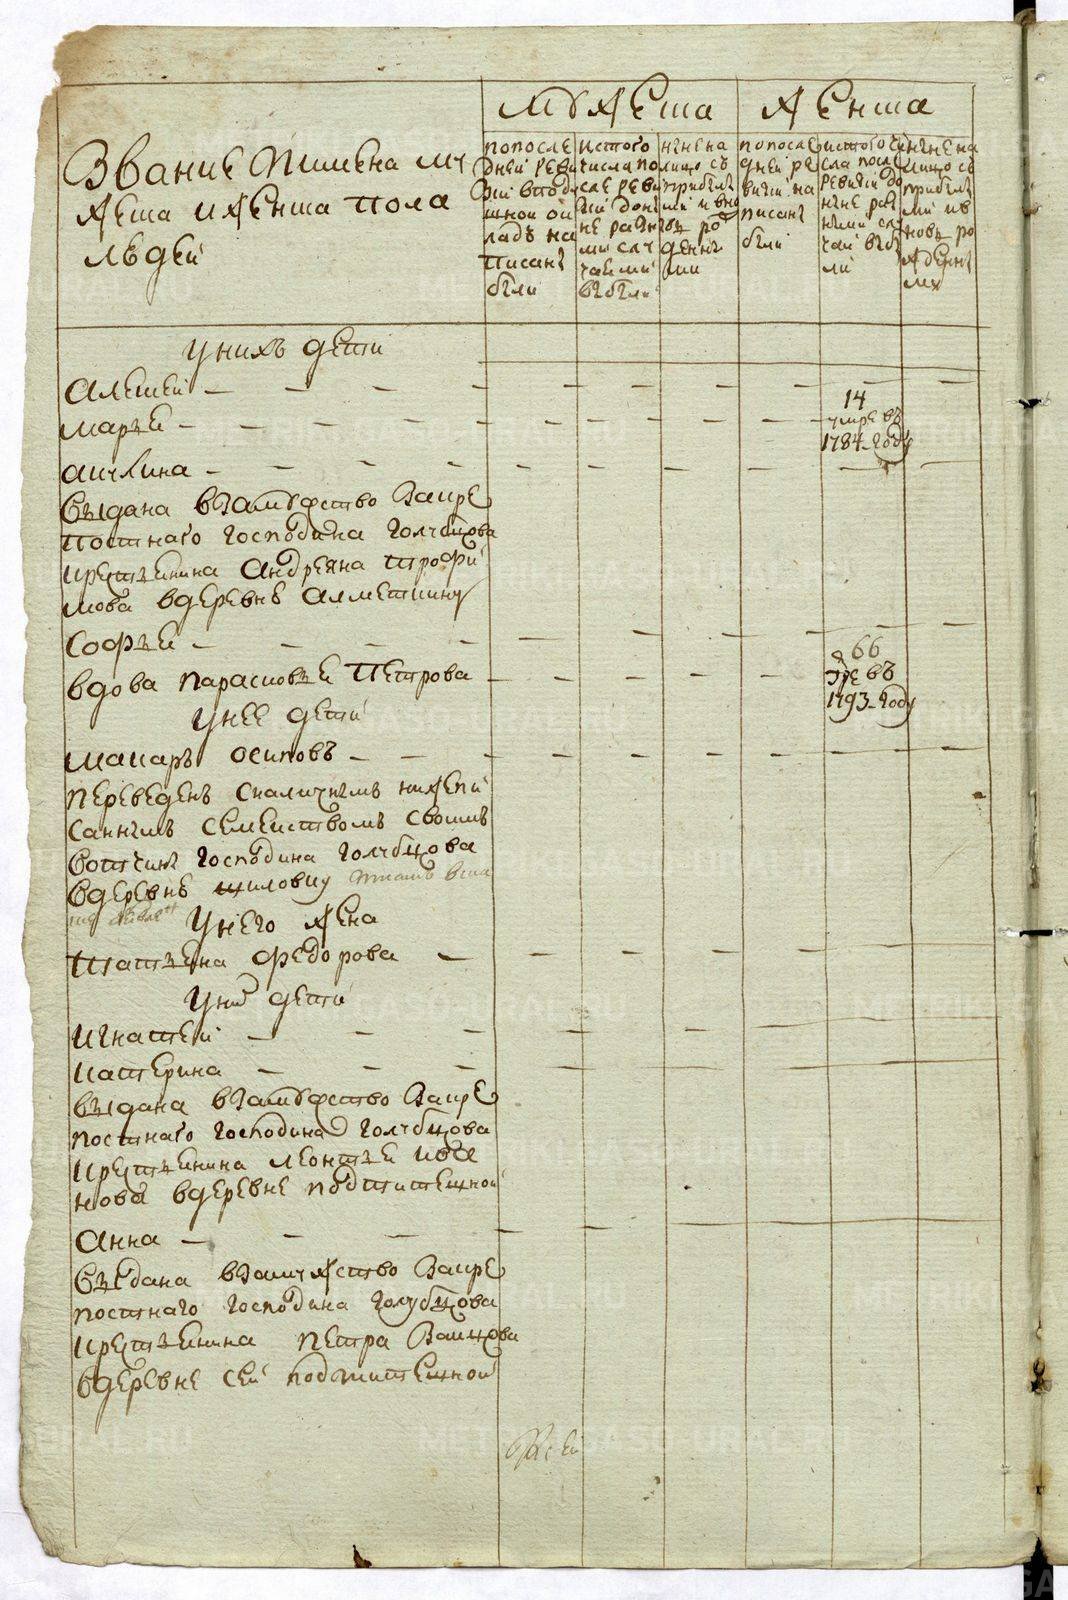 Звание имена му
жеска и женска пола
людей
мужеска
женска
попосле
дней реви
зии вподу
шной ок
ладъ на
писаны
были
истого
числа по
сле реви
зии доны
не разны
ми слу
чаеми
выбыли
ныне на
лицо съ
прибылы
ми и вно
вь ро
жденны
ми
попосле
дней ре
визии на
писаны
были
истого чи
сла после
ревизии до
ныне раз
ными слу
чаи выбы
ли
ныне на
лицо съ
прибылы
ми ив
новь ро
жденны
ми
уних дети
алексей
марья
14
умре въ
1784 году
акулина
выдана взамужство Закре
постнаго господина голубцова
крестьянина андреяна трофи
мова вдеревне
софья
66
умре въ
1793 году
вдова парасковья петрова
унее дети
макаръ осиповъ
переведенъ сналичнымъ нижепи
саннымъ семействомъ своимъ
вотчины господина голубцова
вдеревне шиловку
унего жена
татьяна федорова
уних дети
игнатей
катерина
выдана взамужство Закре
постнаго господина голубцова
крестьянина леонтья ива
нова вдеревне
анна
выдана взамужство Закре
постнаго господина голубцова
крестьянина петра
вдеревне сей